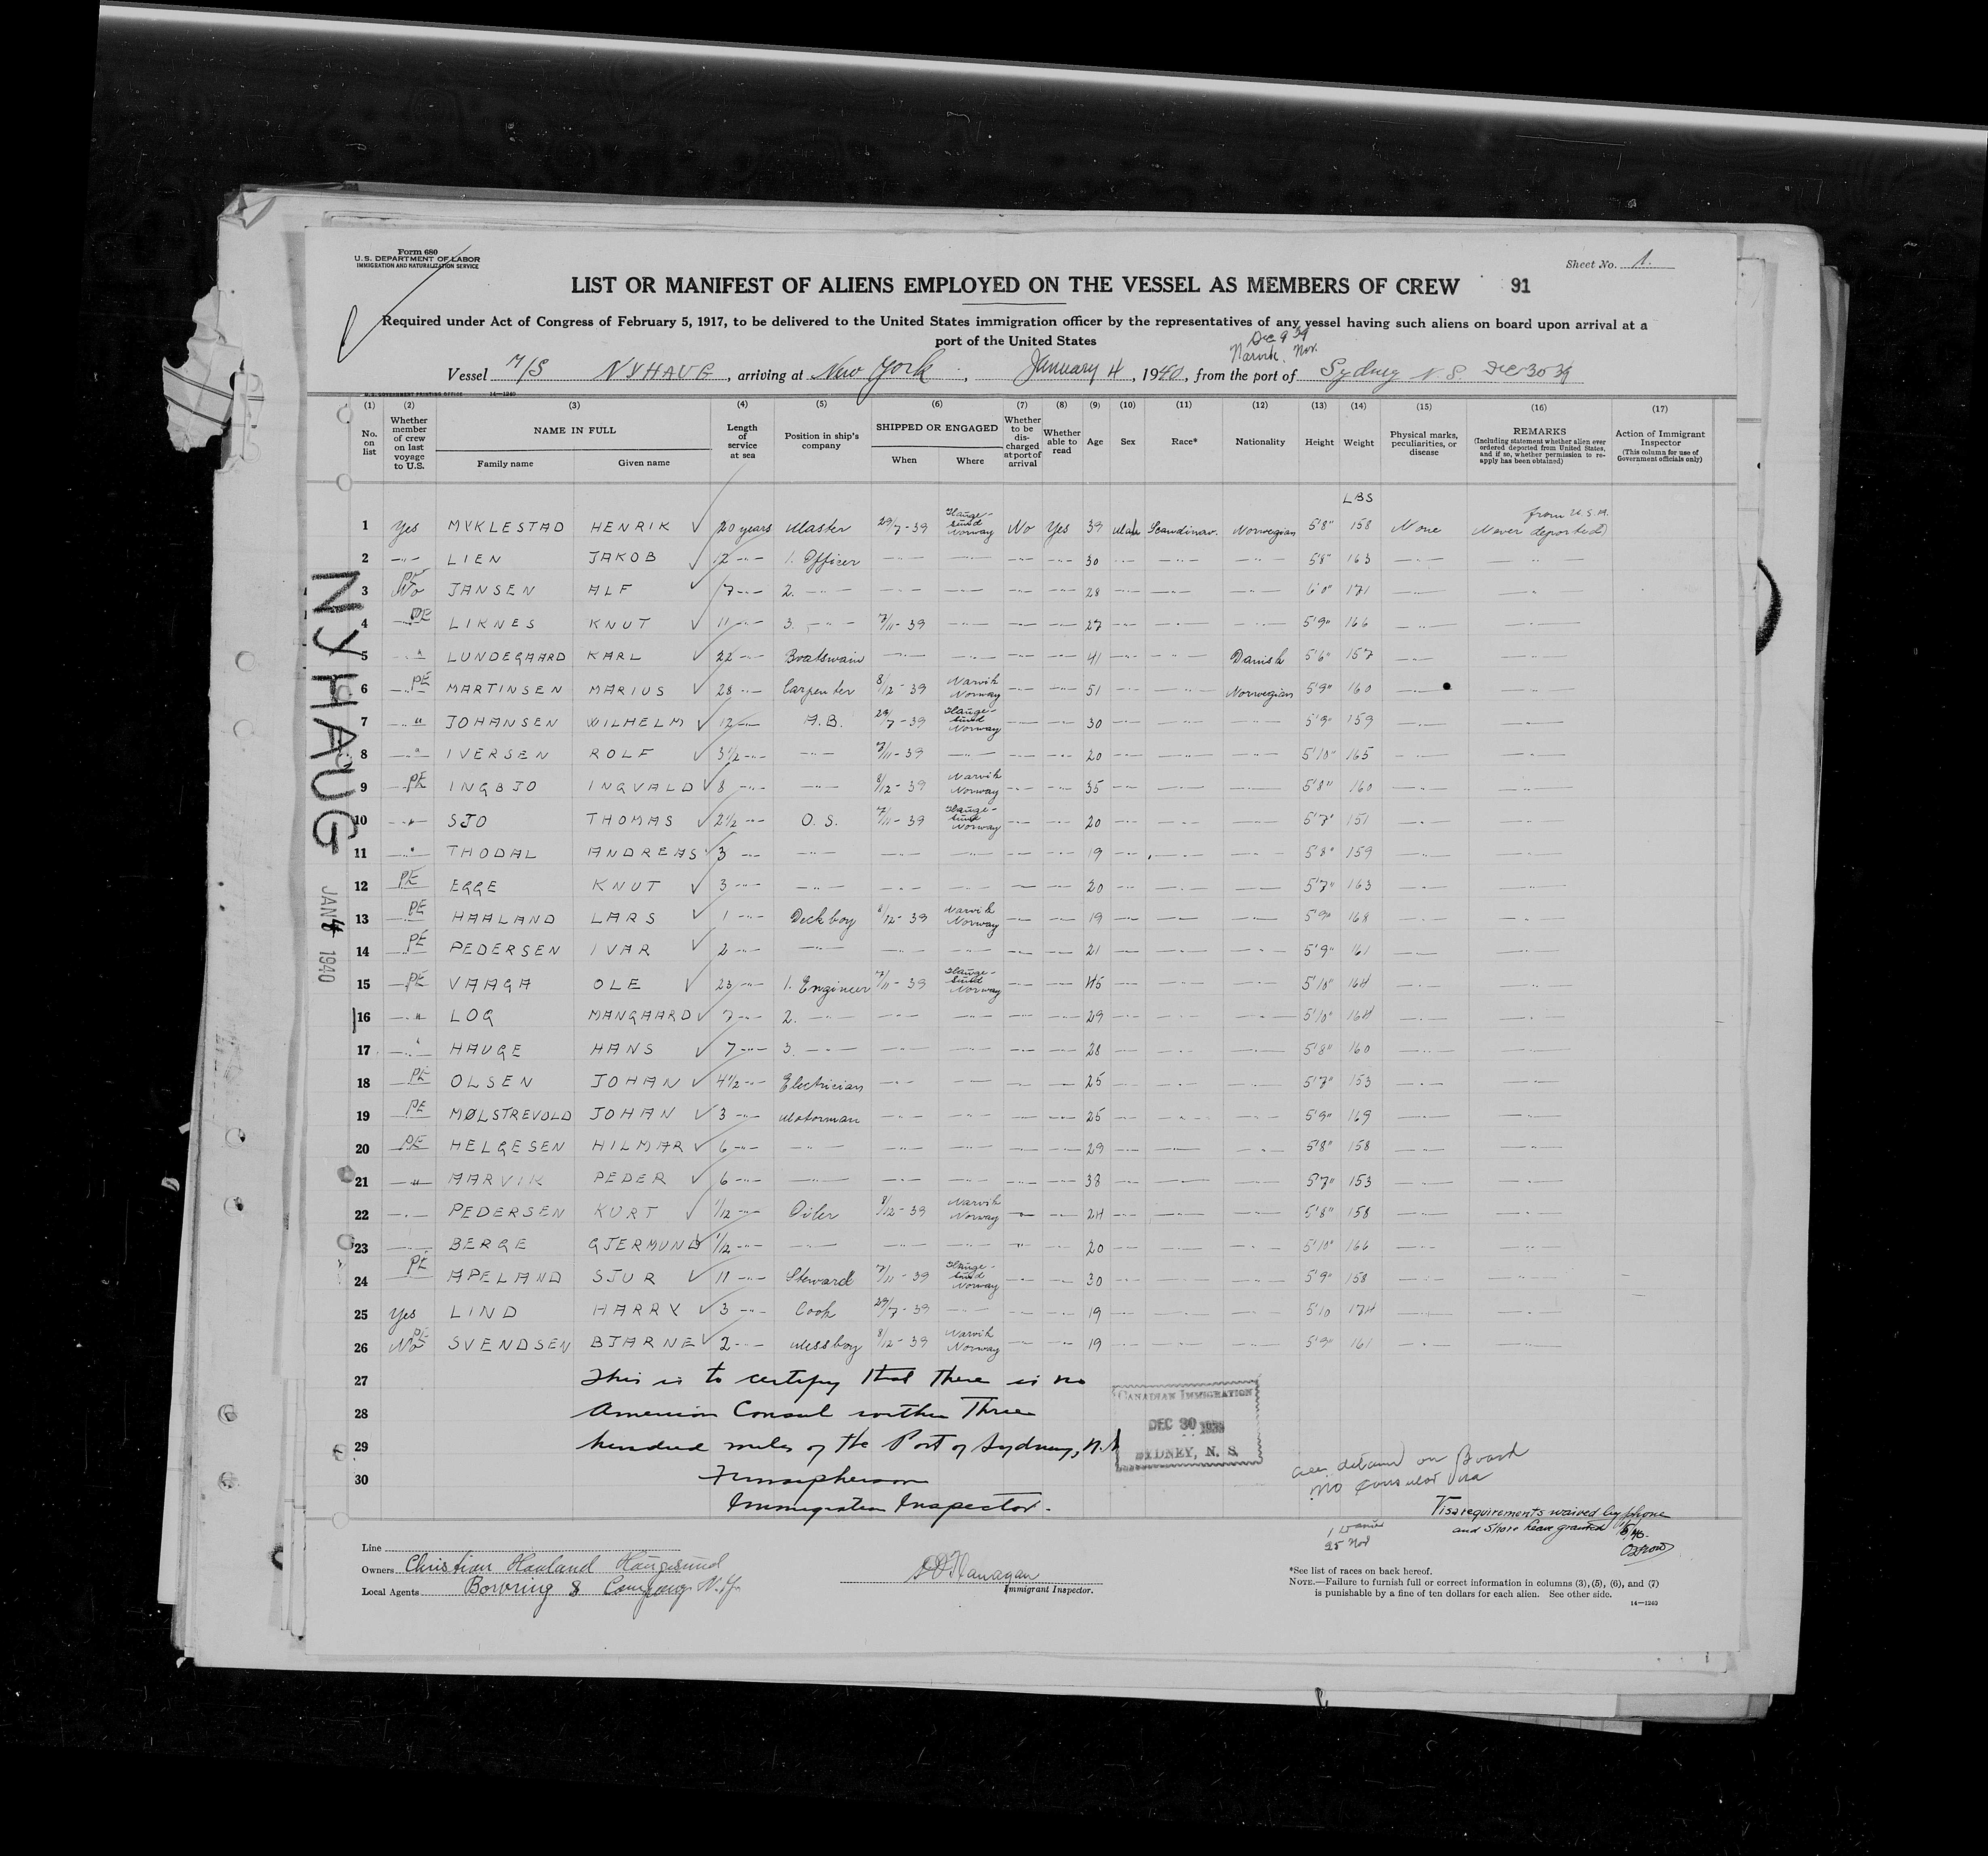 Form 680
U. S. DEPARTMENT OF LABOR
IMMIGRATION AND NATURALIZATION SERVICE
Sheet No. 1.
LIST OR MANIFEST OF ALIENS EMPLOYED ON THE VESSEL AS MEMBERS OF CREW 91
Required under Act of Congress of February 5, 1917, to be delivered to the United States immigration officer by the representatives of any vessel having such aliens on board upon arrival at a
port of the United States
Dec 9 39
Narvik, Nor.
Vessel M/S NYHAUG, arriving at New York, January 4, 1940, from the port of Sydney N S Dec 30 39
U. S. GOVERNMENT PRINTING OFFICE 14—1240
(1) (2) (3) (4) (5) (6) (7) (8) (9) (10) (11) (12) (13) (14) (15) (16) (17)
No. on list
Whether member of crew on last voyage to U.S.
NAME IN FULL
Family name Given name
Length of service at sea
Position in ship's company
SHIPPED OR ENGAGED
When Where
Whether to be discharged at port of arrival
Whether able to read
Age Sex Race* Nationality Height Weight
Physical marks, peculiarities, or disease
REMARKS
(Including statement whether alien ever ordered deported from United States, and if so, whether permission to reapply has been obtained)
Action of Immigrant Inspector
(This column for use of Government officials only)
LBS
1 Yes MYKLESTAD HENRIK 20 years Master 29/7-39 Haugesund Norway No Yes 39 Male Scandinav. Norwegian 5'8" 158 None Never deported from U.S.A.
2 —"— LIEN JAKOB 12 —"— 1. Officer —"— —"— —"— —"— 30 —"— —"— —"— 5'8" 163 —"— —"—
3 No PE JANSEN ALF 7 —"— 2. —"— —"— —"— —"— —"— 28 —"— —"— —"— 6'0" 171 —"— —"—
4 PE LIKNES KNUT 11 —"— 3. —"— 7/11-39 —"— —"— —"— 27 —"— —"— —"— 5'9" 166 —"— —"—
5 —"— LUNDEGAARD KARL 22 —"— Boatswain —"— —"— —"— —"— 41 —"— —"— Danish 5'6" 157 —"— —"—
6 PE MARTINSEN MARIUS 28 —"— Carpenter 8/12-39 Narvik Norway —"— —"— 51 —"— —"— Norwegian 5'9" 160 —"— —"—
7 —"— JOHANSEN WILHELM 12 —"— A.B. 29/7-39 Haugesund Norway —"— —"— 30 —"— —"— —"— 5'9" 159 —"— —"—
8 —"— IVERSEN ROLF 3½ —"— —"— 7/11-39 —"— —"— —"— 20 —"— —"— —"— 5'10" 165 —"— —"—
9 PE INGBJO INGVALD 8 —"— —"— 8/12-39 Narvik Norway —"— —"— 35 —"— —"— —"— 5'8" 160 —"— —"—
10 —"— SJO THOMAS 2½ —"— O. S. 7/11-39 Haugesund Norway —"— —"— 20 —"— —"— —"— 5'7" 151 —"— —"—
11 —"— THODAL ANDREAS 3 —"— —"— —"— —"— —"— —"— 19 —"— —"— —"— 5'8" 159 —"— —"—
12 PE EGGE KNUT 3 —"— —"— —"— —"— —"— —"— 20 —"— —"— —"— 5'7" 163 —"— —"—
13 PE HAALAND LARS 1 —"— Deckboy 8/12-39 Narvik Norway —"— —"— 19 —"— —"— —"— 5'9" 168 —"— —"—
14 PE PEDERSEN IVAR 2 —"— —"— —"— —"— —"— —"— 21 —"— —"— —"— 5'9" 161 —"— —"—
15 PE VAAGA OLE 23 —"— 1. Engineer 7/11-39 Haugesund Norway —"— —"— 45 —"— —"— —"— 5'10" 164 —"— —"—
16 —"— LOG MANGAARD 7 —"— 2. —"— —"— —"— —"— —"— 29 —"— —"— —"— 5'10" 164 —"— —"—
17 —"— HAUGE HANS 7 —"— 3. —"— —"— —"— —"— —"— 28 —"— —"— —"— 5'8" 160 —"— —"—
18 PE OLSEN JOHAN 4½ —"— Electrician —"— —"— —"— —"— 25 —"— —"— —"— 5'7" 153 —"— —"—
19 PE MØLSTREVOLD JOHAN 3 —"— Motorman —"— —"— —"— —"— 25 —"— —"— —"— 5'9" 169 —"— —"—
20 PE HELGESEN HILMAR 6 —"— —"— —"— —"— —"— —"— 29 —"— —"— —"— 5'8" 158 —"— —"—
21 —"— AARVIK PEDER 6 —"— —"— —"— —"— —"— —"— 38 —"— —"— —"— 5'7" 153 —"— —"—
22 —"— PEDERSEN KURT 1/12 —"— Oiler 8/12-39 Narvik Norway —"— —"— 24 —"— —"— —"— 5'8" 158 —"— —"—
23 —"— BERGE GJERMUND 1/12 —"— —"— —"— —"— —"— —"— 20 —"— —"— —"— 5'10" 166 —"— —"—
24 PE APELAND SJUR 11 —"— Steward 7/11-39 Haugesund Norway —"— —"— 30 —"— —"— —"— 5'9" 158 —"— —"—
25 Yes LIND HARRY 3 —"— Cook 29/7-39 —"— —"— —"— 19 —"— —"— —"— 5'10 174 —"— —"—
26 No PE SVENDSEN BJARNE 2 —"— Messboy 8/12-39 Narvik Norway —"— —"— 19 —"— —"— —"— 5'9" 161 —"— —"—
27 This is to certify that there is no
28 American Consul within Three
29 hundred miles of the Port of Sydney, N.S
30
Immigration Inspector.
CANADIAN IMMIGRATION
DEC 30 1939
SYDNEY, N. S.
NYHAUG
JAN 4 1940
detained on Board
no Consular visa
Visa requirements waived by phone
and shore leave granted
1 Danish
25 Nor
Line
Owners Christian Haaland Haugesund
Local Agents Bowring & Company N.Y.
Immigrant Inspector.
*See list of races on back hereof.
NOTE.—Failure to furnish full or correct information in columns (3), (5), (6), and (7)
is punishable by a fine of ten dollars for each alien. See other side.
14—1240